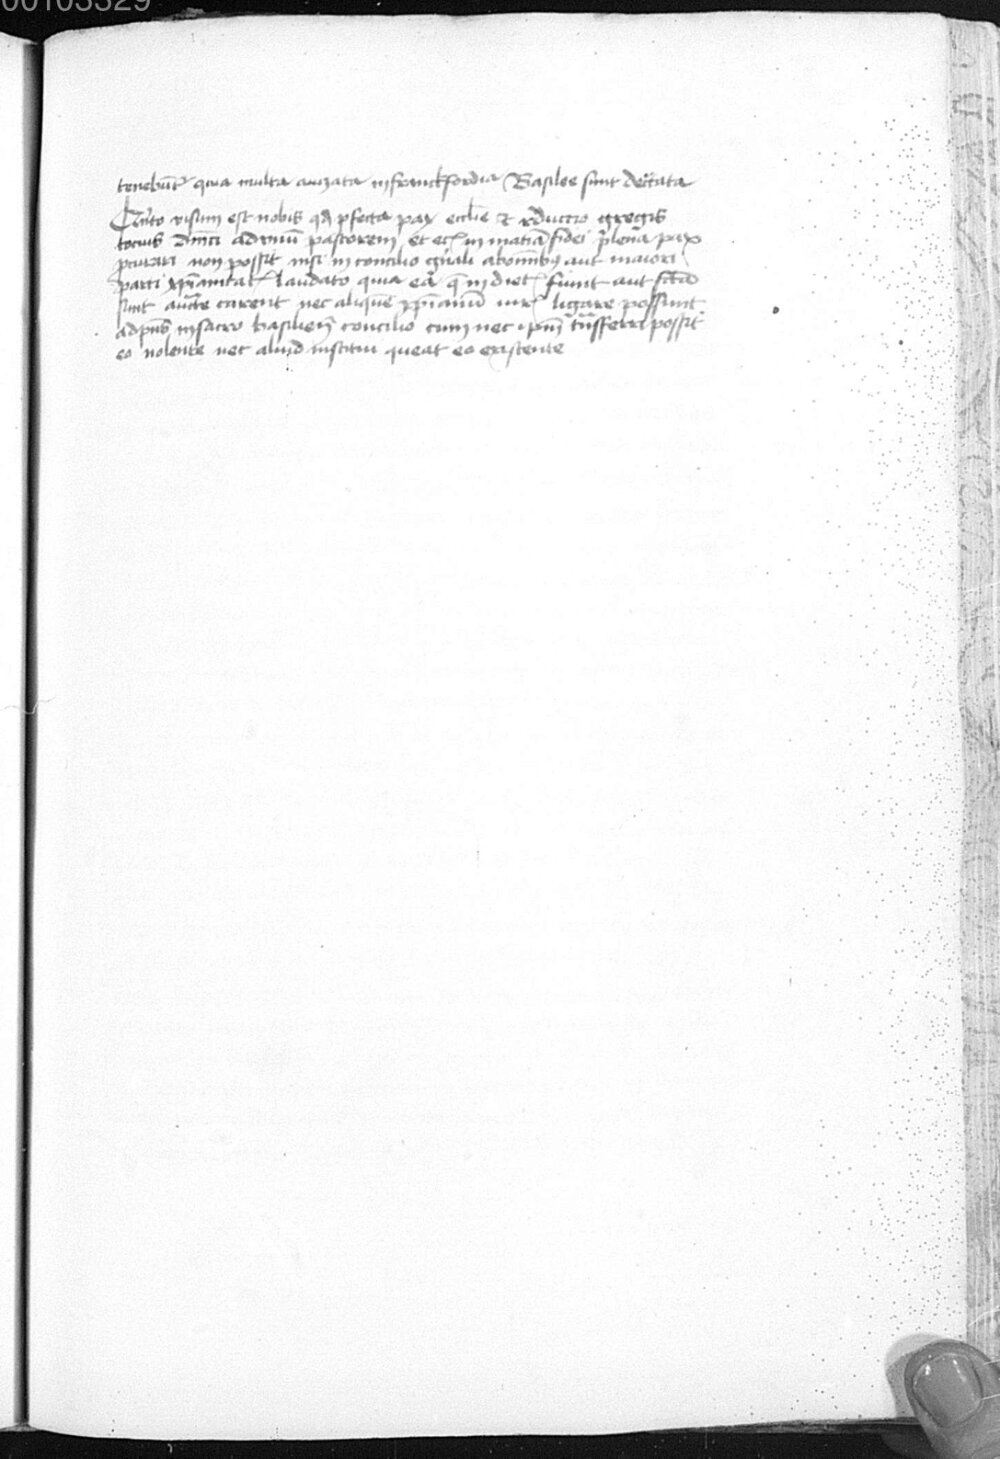 00103329
tenebūt᷑ quia multa auizata in franckfordia Basilee sunt dettata
Quīto visum est nobis qd pfecta pax eccl̄ie et rductio gregis
tocius dn̄ici ad vnū pastorem et ec̄ in mat̄ia fidei plena pax
pcurari non possit nisi in concilio gn̄ali ab om̄ibꝫ aut maiori
parti xp̄ianitat᷑ laudato quia ea que in diet᷑ fiunt aut sc̄a
sunt auct̄e carent nec aliquē xp̄ianū iur᷑ ligare possunt
ad pn̄s in sacro basilien̄ concilio cum nec ip̄m tn̄sferri possit
eo nolente nec aliud institui queat eo existente